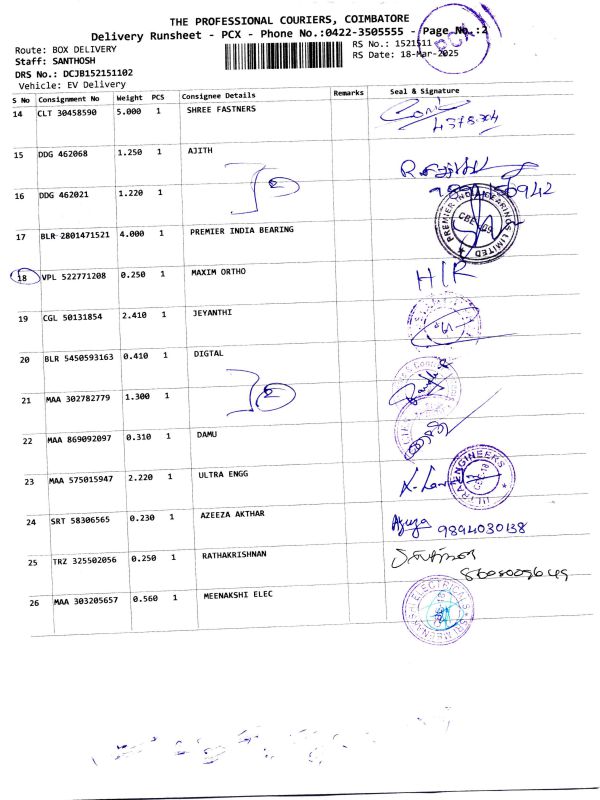 THE PROFESSIONAL COURIERS, COIMBATORE
Delivery Runsheet - PCX - Phone No.:0422-3505555 - Page No.:2
PCX
Route: BOX DELIVERY
RS No.: 1521511
Staff: SANTHOSH
RS Date: 18-Mar-2025
DRS No.: DCJB152151102
Vehicle: EV Delivery
S No Consignment No Weight PCS Consignee Details Remarks Seal & Signature
14 CLT 30458590 5.000 1 SHREE FASTNERS
15 DDG 462068 1.250 1 AJITH
16 DDG 462021 1.220 1
2
17 BLR 2801471521 4.000 1 PREMIER INDIA BEARING
PREMIER INDIA BEARINGS LIMITED
18 VPL 522771208 0.250 1 MAXIM ORTHO
H/R
19 CGL 50131854 2.410 1 JEYANTHI
20 BLR 5450593163 0.410 1 DIGTAL
21 MAA 302782779 1.300 1
2
22 MAA 869092097 0.310 1 DAMU
23 MAA 575015947 2.220 1 ULTRA ENGG
ULTRA ENGINEERS
24 SRT 58306565 0.230 1 AZEEZA AKTHAR
9894030138
25 TRZ 325502056 0.250 1 RATHAKRISHNAN
26 MAA 303205657 0.560 1 MEENAKSHI ELEC